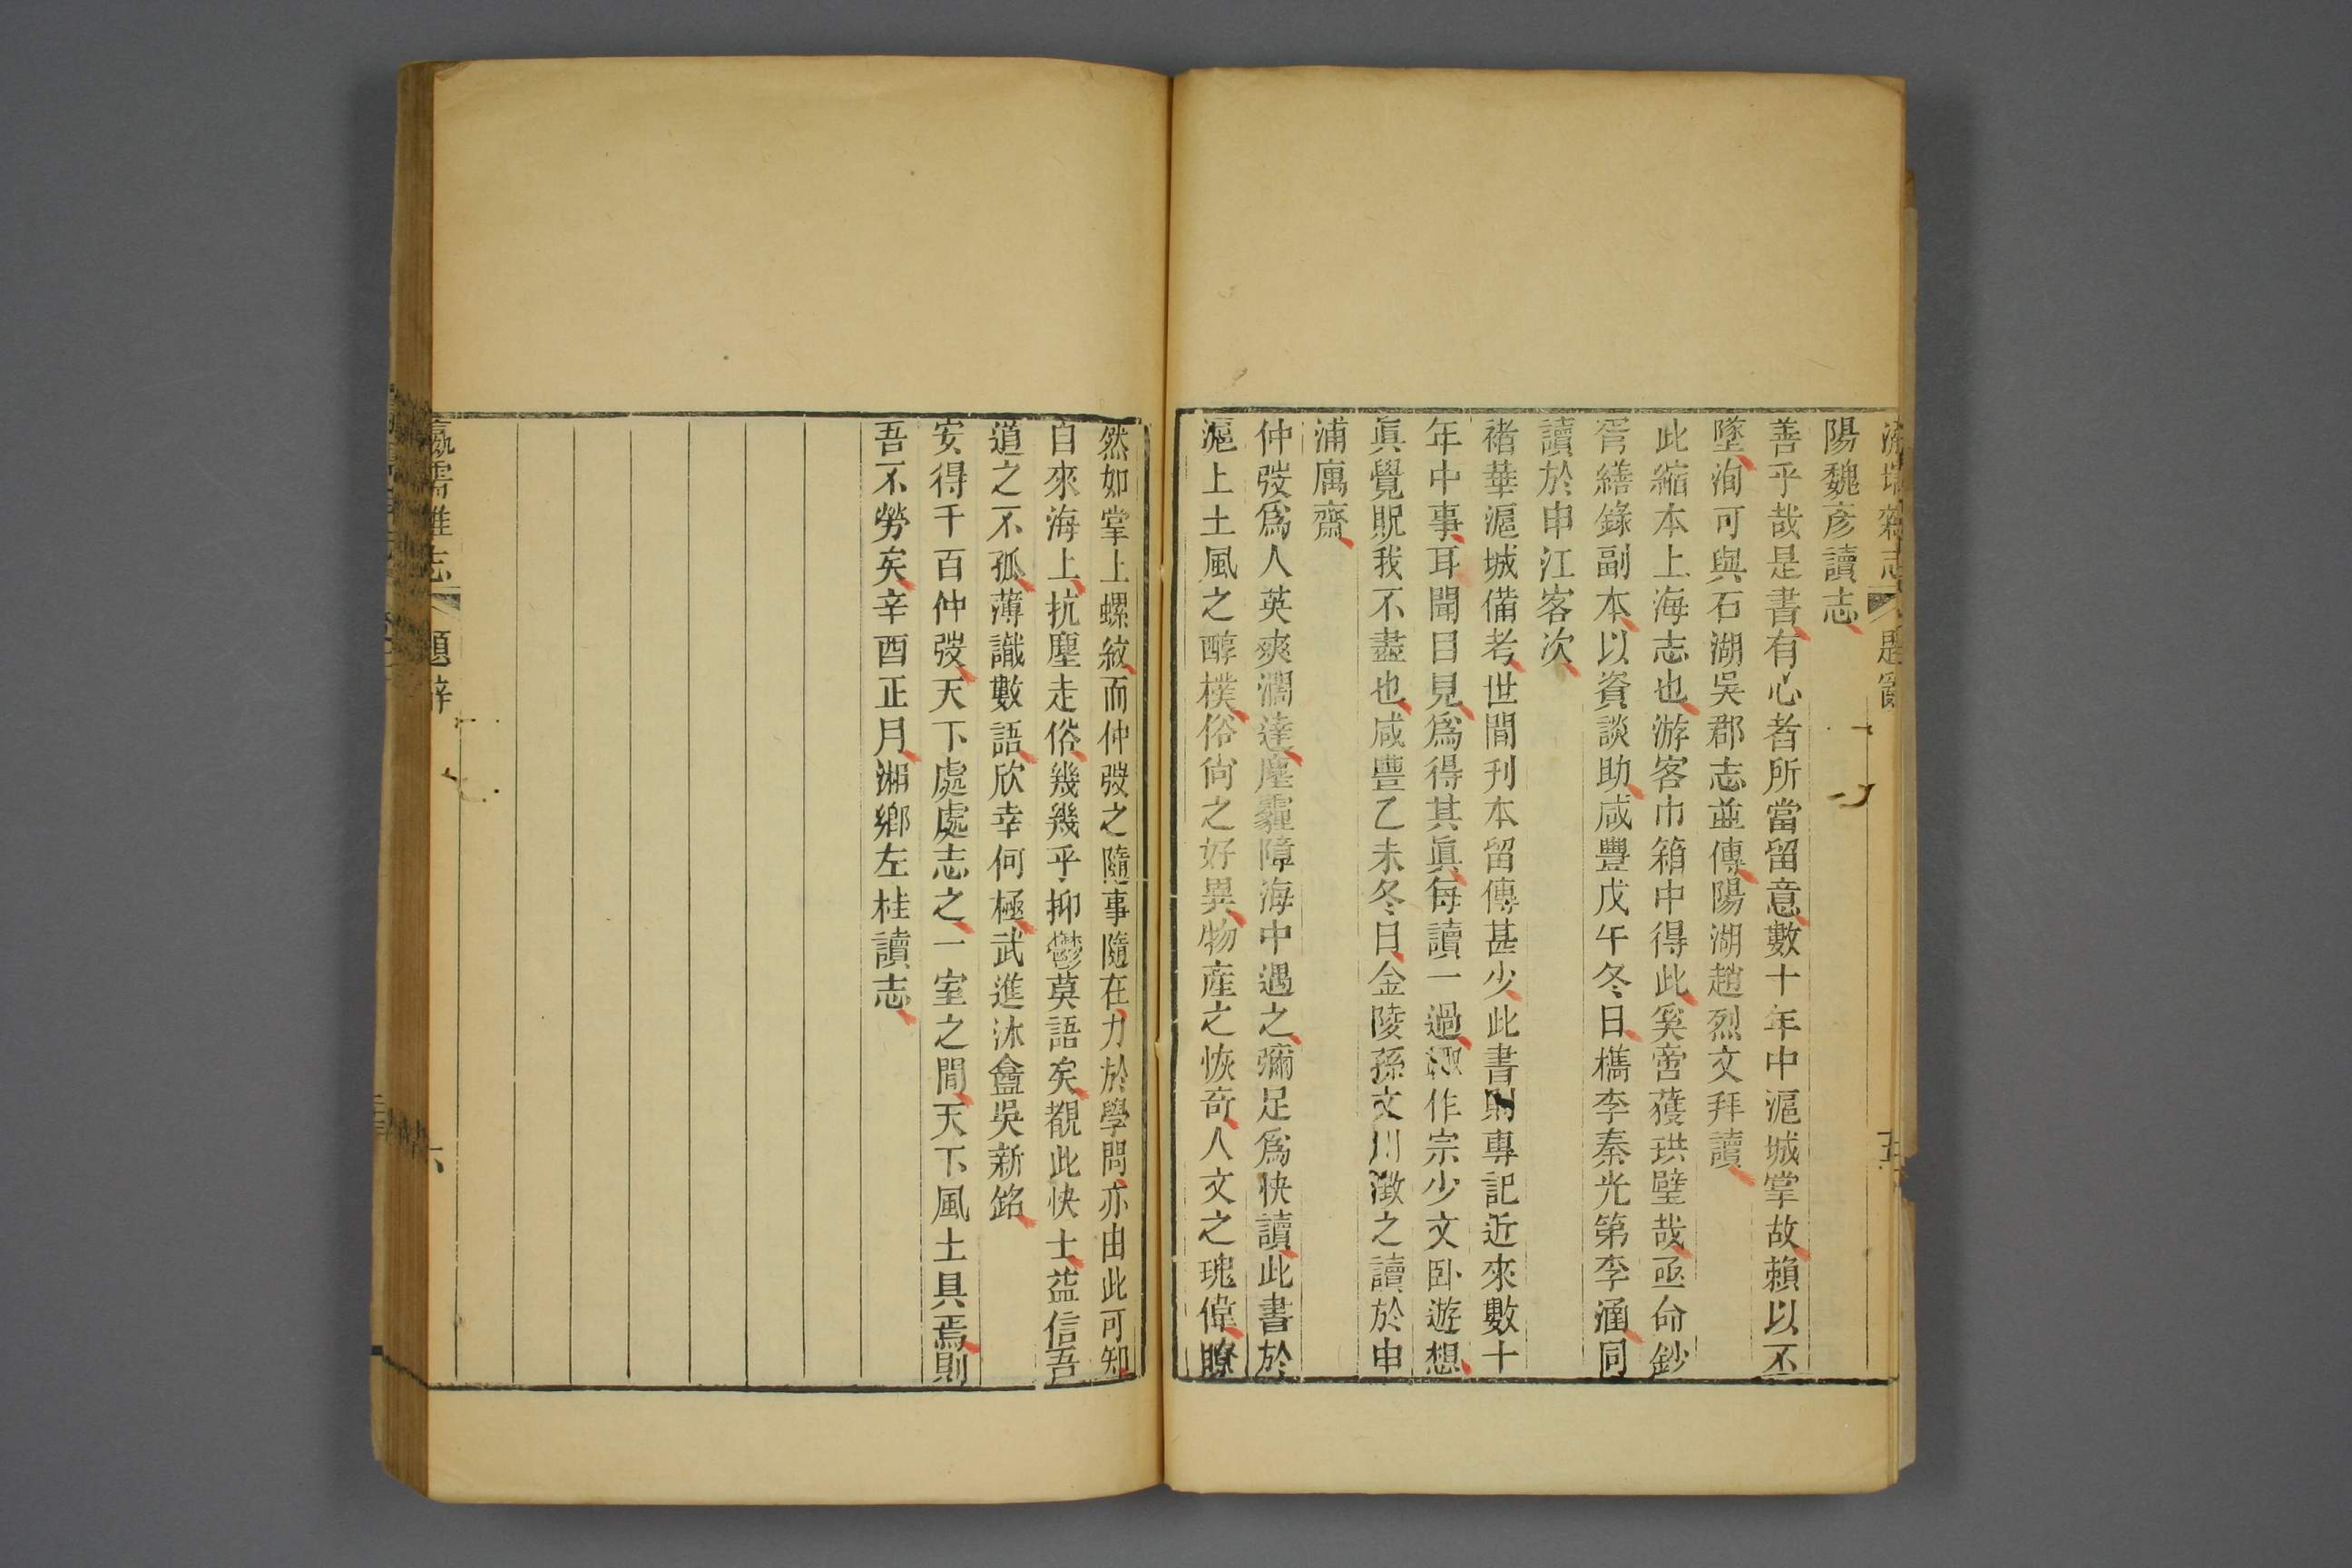 瀛壖雜志
題詞
五
陽魏彥讀志
善乎哉是書有心者所當留意數十年中滬城掌故賴以不
墜洵可與石湖吳郡志並傳陽湖趙烈文拜讀
此縮本上海志也游客巾箱中得此奚啻獲珙璧哉亟命鈔
胥繕錄副本以資談助咸豐戊午冬日檇李秦光第李涵同
讀於申江客次
褚華滬城備考世間刊本留傳甚少此書則專記近來數十
年中事耳聞目見爲得其眞每讀一過極作宗少文卧遊想
眞覺貺我不盡也咸豐乙未冬日金陵孫文川澂之讀於申
浦寓齋
仲弢爲人英爽濶達塵霾障海中遇之彌足爲快讀此書於
滬上土風之醇樸俗尙之好異物產之恢奇人文之瑰偉瞭
然如掌上螺紋而仲弢之隨事隨在力於學問亦由此可知
自來海上抗塵走俗幾幾乎抑鬱莫語矣覩此快士益信吾
道之不孤薄識數語欣幸何極武進沐盦吳新銘
安得千百仲弢天下處處志之一室之間天下風土具焉則
吾不勞矣辛酉正月湘鄉左桂讀志
瀛壖雜志
題辭
六